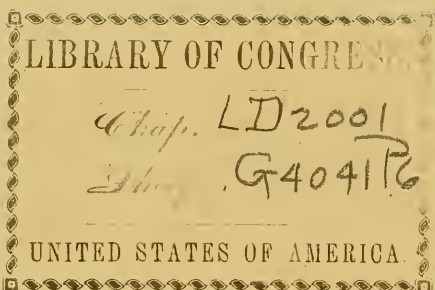 LIBRARY OF CONGRE
Chap. LD2001
.G4041P6
UNITED STATES OF AMERICA.